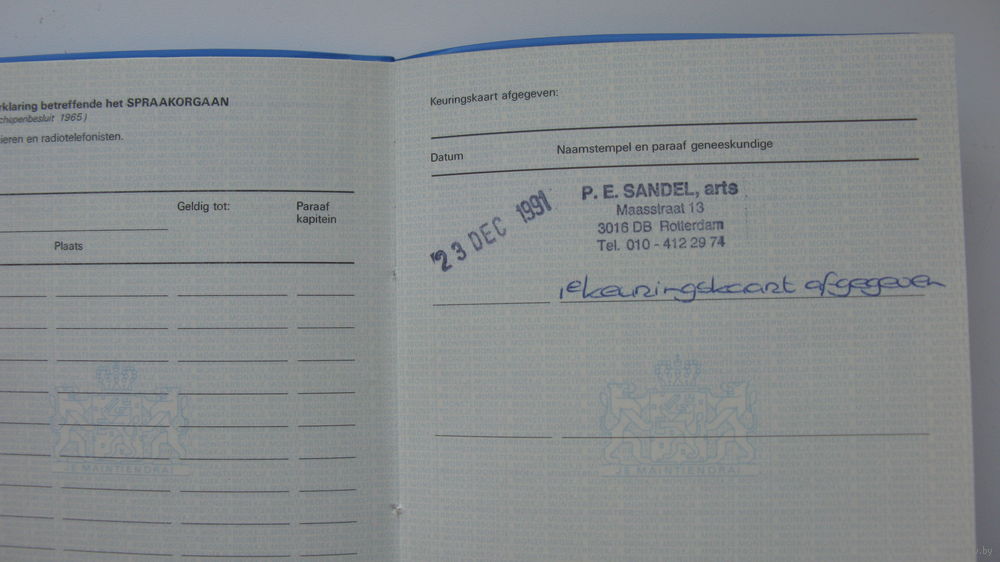 rklaring betreffende het SPRAAKORGAAN
chepenbesluit 1965)
ieren en radiotelefonisten.
Geldig tot:
Paraaf
kapitein
Plaats
JE MAINTIENDRAI
Keuringskaart afgegeven:
Datum
Naamstempel en paraaf geneeskundige
23 DEC 1991
P. E. SANDEL, arts
Maasstraat 13
3016 DB Rotterdam
Tel. 010 - 412 29 74
1e keuringskaart afgegeven
JE MAINTIENDRAI